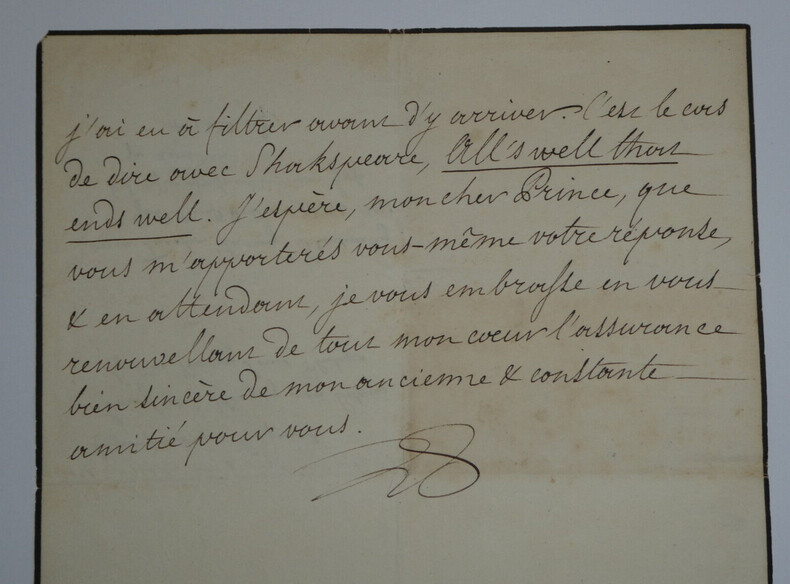 j'ai eu à filtrer avant d'y arriver. C'est le cas
de dire avec Shakspeare, All's well that
ends well. J'espère, mon cher Prince, que
vous m'apporterés vous-même votre réponse,
& en attendant, je vous embrasse en vous
renouvellant de tout mon cœur l'assurance
bien sincère de mon ancienne & constante
amitié pour vous.